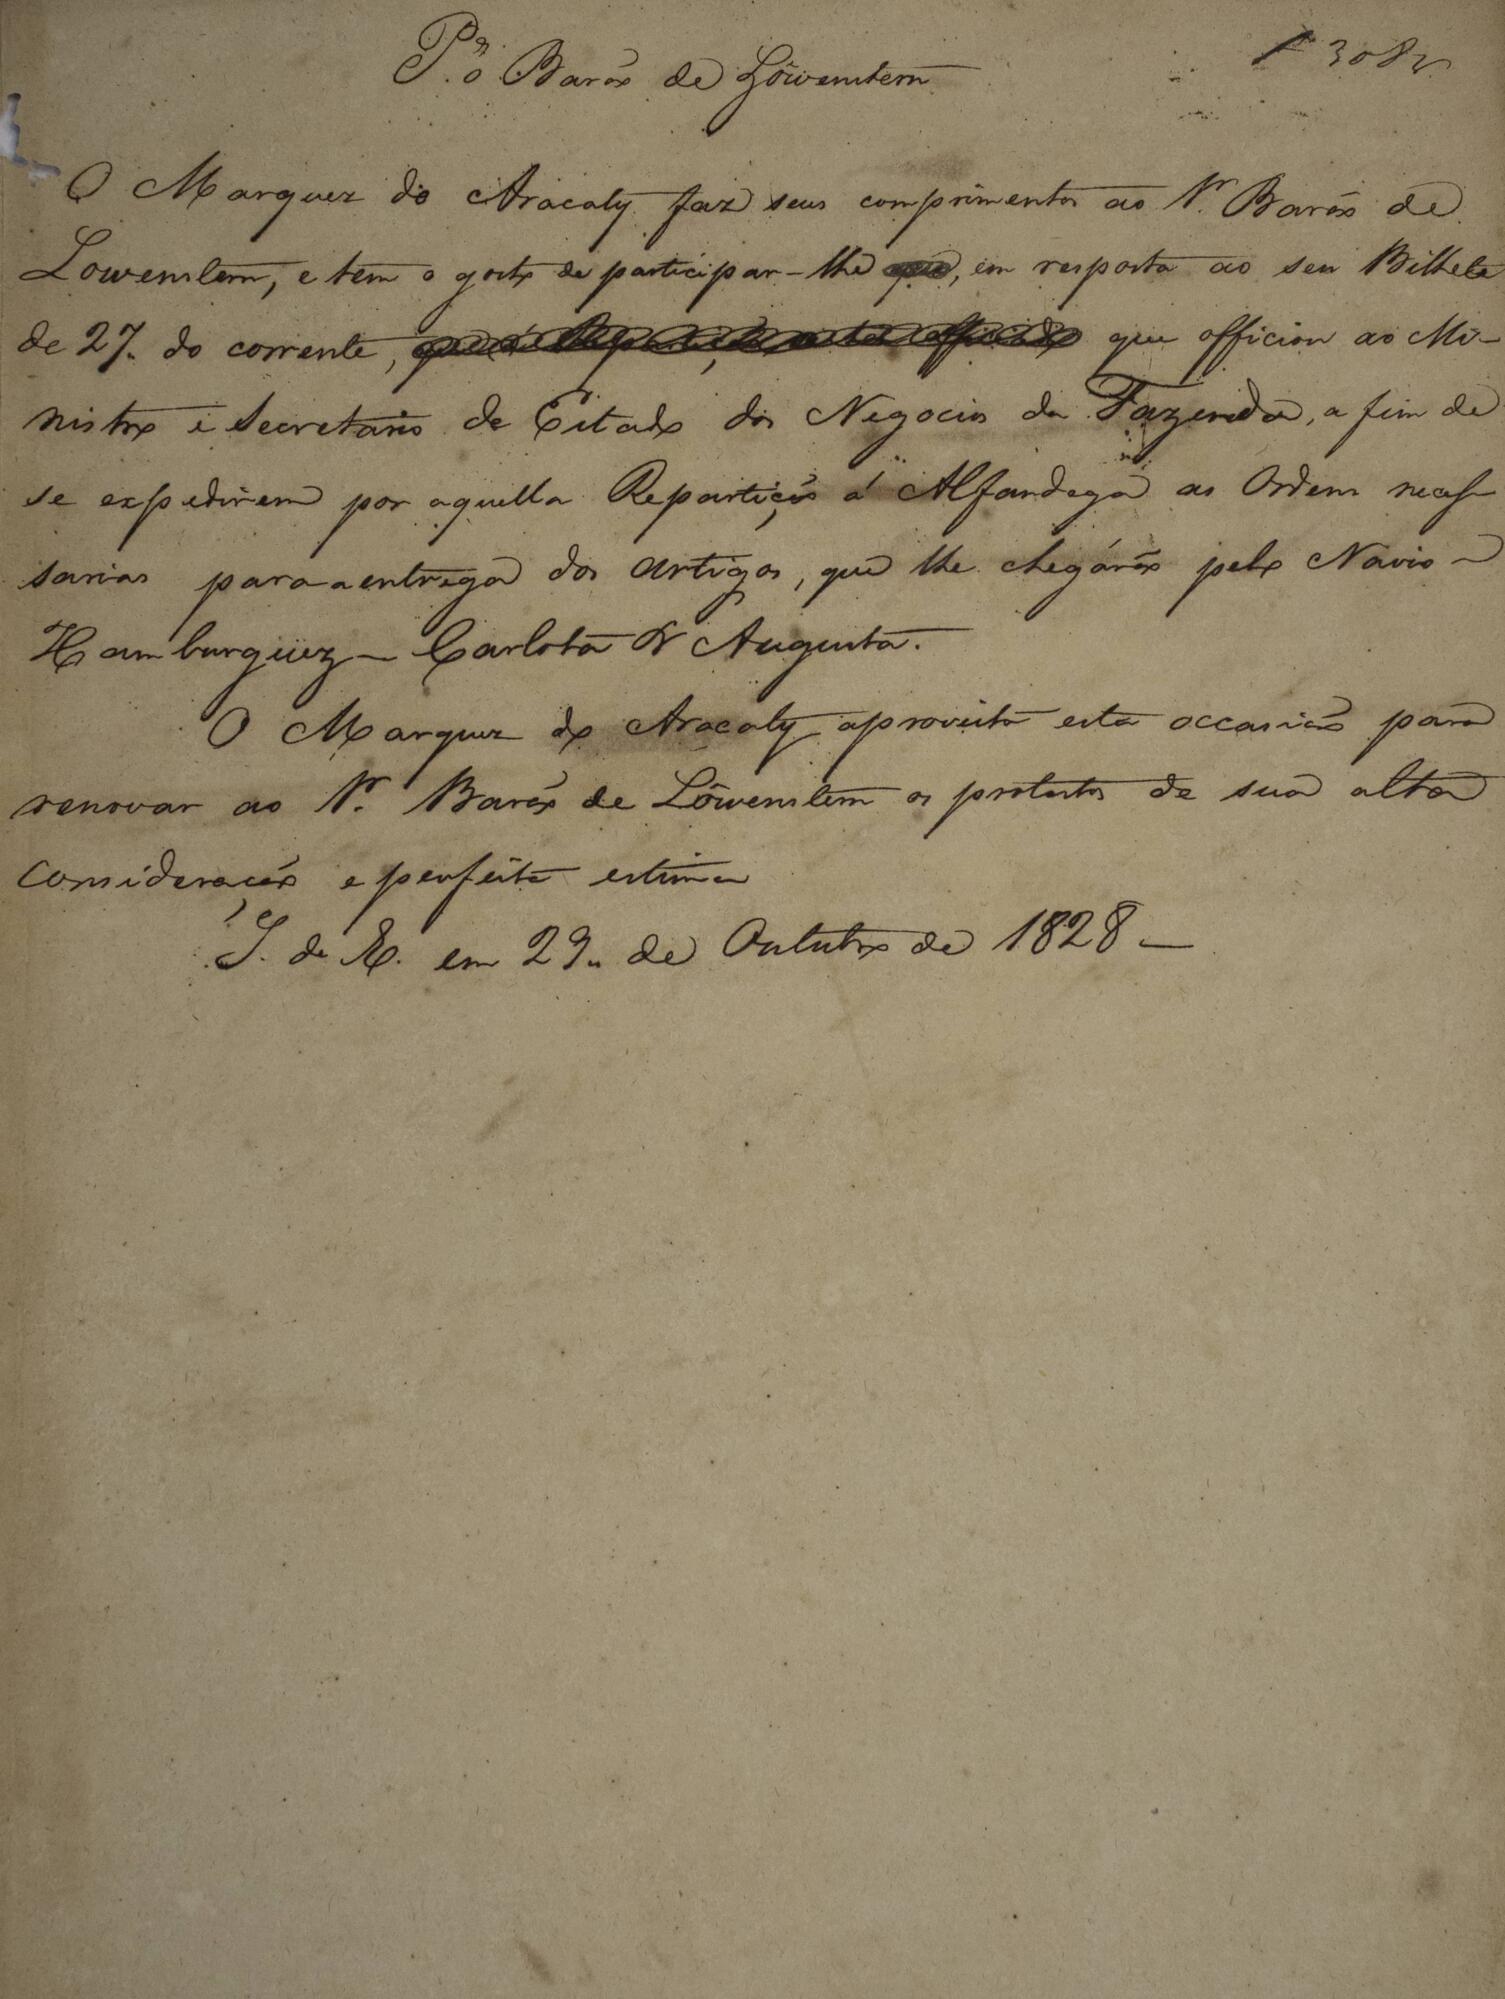 P.ª o Barão de Löwenstern
O Marquez do Aracaty faz seus comprimentos ao Sr. Barão de
Lowenstern, e tem o gosto de participar-lhe que, em resposta ao seu Bilhete
de 27 do corrente, que officiou ao Mi-
nistro e Secretario de Estado dos Negocios da Fazenda, a fim de
se expedirem por aquella Repartição á Alfandega as Ordens neces-
sarias para a entrega dos artigos, que lhe chegárão pelo Navio -
Hamburguez - Carlota & Augusta.
O Marquez do Aracaty aproveita esta occasião para
renovar ao Sr. Barão de Löwenstern os protestos de sua alta
consideração e perfeita estima
S. de E. em 29 de Outubro de 1828 -